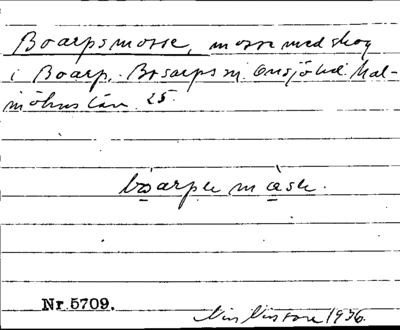 Boarpsmosse, mosse med skog
i Boarp. Bosarps sn. Onsjö hd. Mal-
möhus län. 25.
bòarps mòsse.
Nr.5709.
1936.